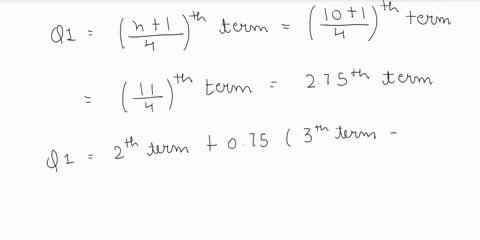 Q1 = (n+1/4)^th term = (10+1/4)^th term
= (11/4)^th term = 2.75^th term
Q1 = 2^th term + 0.75 ( 3^th term -